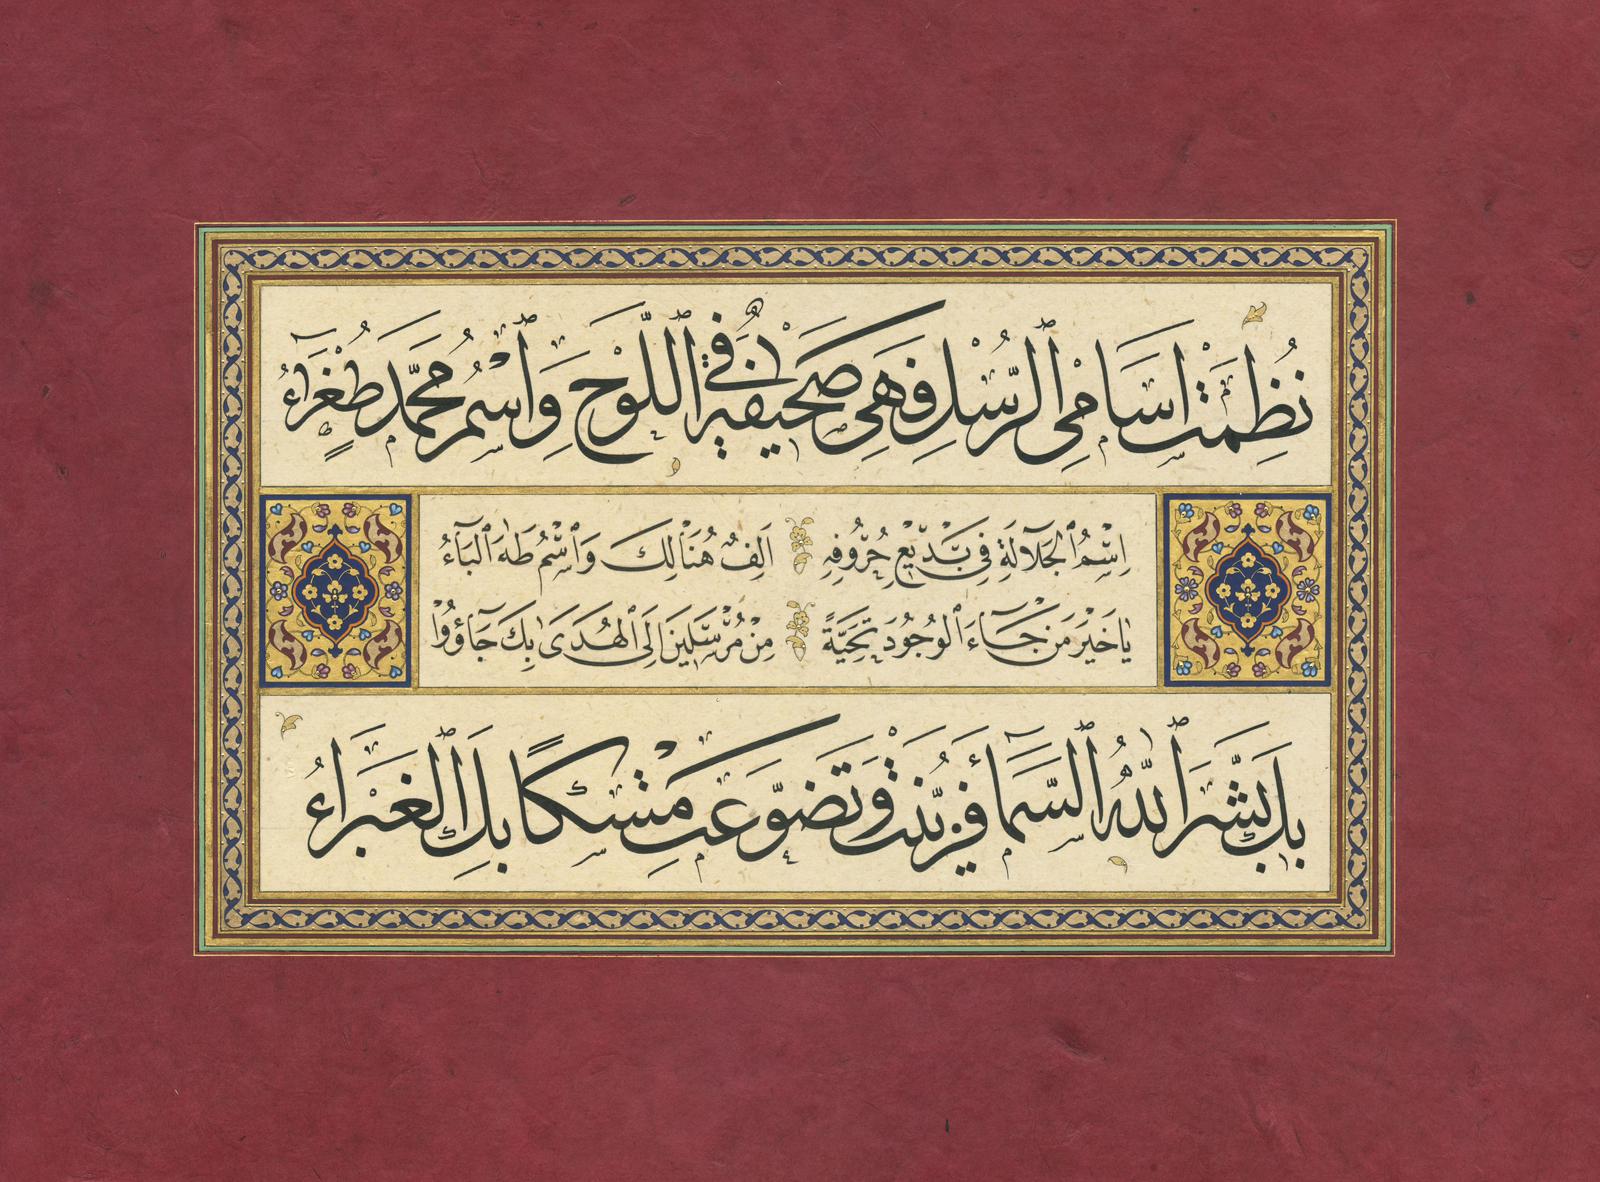 نُظِمَتْ اَسَامِي الرُّسْلِ فَهِيَ صَحِيفَةٌ فِي اللَّوْحِ وَاسْمُ مُحَمَّدٍ طُغْرَاءُ
اِسْمُ الْجَلَالَةِ فِي بَدِيعِ حُرُوفِهِ اَلِفٌ هُنَالِكَ وَاسْمُ طٰهَ الْبَاءُ
يَاخَيْرَ مَنْ جَاءَ الْوُجُودَ تَحِيَّةً مِنْ مُرْسَلِينَ اِلَى الْهُدَى بِكَ جَاؤُوْا
بِكَ بَشَّرَ اللّٰهُ السَّمَاءَ فَزُيِّنَتْ وَتَضَوَّعَتْ مِسْكًا بِكَ الْغَبْرَاءُ